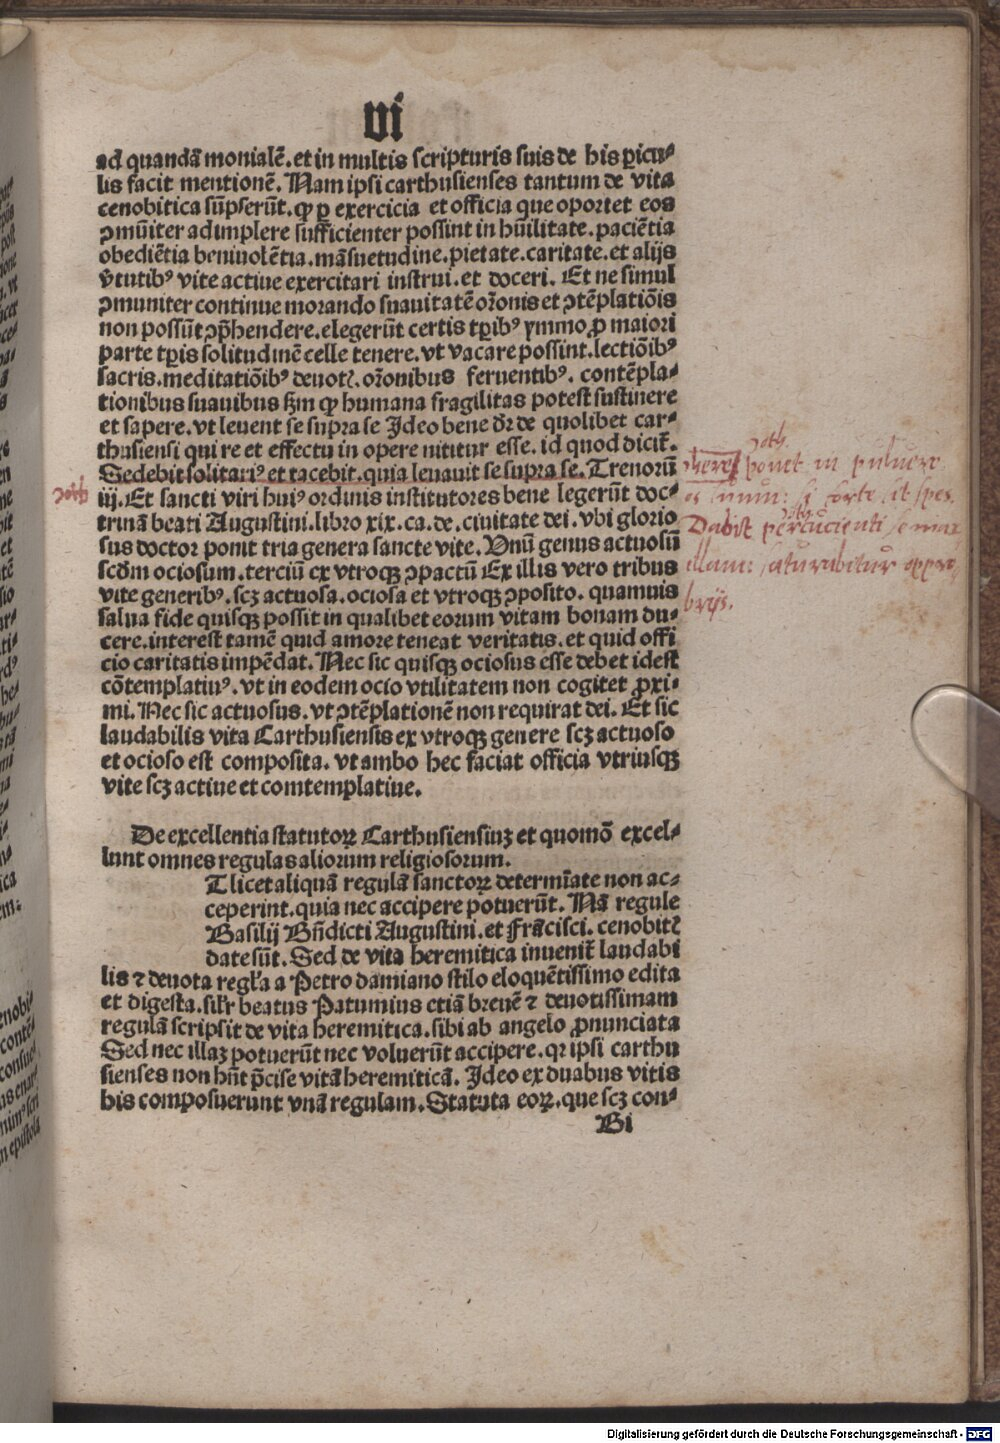 vi
ad quandā monialē. et in multis scripturis suis de his ꝑicu⸗
lis facit mentionē. Nam ipsi carthusienses tantum de vita
cenobitica sūpserūt. ꝙ ꝑ exercicia et officia que oportet eos
ꝯmūiter adimplere sufficienter possint in hūilitate. paciētia
obediētia beniuolētia. māsuetudine. pietate. caritate. et alijs
v̄tutibꝰ vite actiue exercitari instrui. et doceri. Et ne simul
ꝯmuniter continue morando suauitatē or̄onis et ꝯtēplatiōis
non possūt ꝯp̄hendere. elegerūt certis tꝑibꝰ ymmo ꝓ maiori
parte tꝑis solitudinē celle tenere. vt vacare possint. lectiōibꝰ
sacris. meditatiōibꝰ deuotꝭ. or̄onibus feruentibꝰ. contēpla⸗
tionibus suauibus ẜm ꝙ humana fragilitas potest sustinere
et sapere. vt leuent se supra se Ideo bene dr̄ de quolibet car⸗
thusiensi qui re et effectu in opere nititur esse. id quod dicit̄.
Sedebit solitariꝰ et tacebit. quia leuauit se supra se. Trenorū
iij. Et sancti viri huiꝰ ordinis institutores bene legerūt doc⸗
trinā beati Augustini. libro xix. ca. de. ciuitate dei. vbi glorio
sus doctor ponit tria genera sancte vite. Vnū genus actuosū
scd̄m ociosum. terciū ex vtroqꝫ ꝯpactū Ex illis vero tribus
vite generibꝰ. scꝫ actuosa. ociosa et vtroqꝫ ꝯposito. quamuis
salua fide quisqꝫ possit in qualibet eorum vitam bonam du⸗
cere. interest tamē quid amore teneat veritatis. et quid offi
cio caritatis impēdat. Nec sic quisqꝫ ociosus esse debet idest
cōtemplatiuꝰ. vt in eodem ocio vtilitatem non cogitet ꝓxi⸗
mi. Nec sic actuosus. vt ꝯtēplationē non requirat dei. Et sic
laudabilis vita Carthusiensis ex vtroqꝫ genere scꝫ actuoso
et ocioso est composita. vt ambo hec faciat officia vtriusqꝫ
vite scꝫ actiue et comtemplatiue.
De excellentia statutoꝝ Carthusiensiuꝫ et quomō excel⸗
lunt omnes regulas aliorum religiosorum.
T licet aliquā regulā sanctoꝝ determīate non ac⸗
ceperint. quia nec accipere potuerūt. Nā regule
Basilij Bn̄dicti Augustini. et Frācisci. cenobitꝭ
date sūt. Sed de vita heremitica inuenit̄ laudabi
lis ⁊ deuota regl̄a a Petro damiano stilo eloquētissimo edita
et digesta. sil̄r beatus Patumius etiā breuē ⁊ deuotissimam
regulā scripsit de vita heremitica. sibi ab angelo ꝓnunciata
Sed nec illaꝫ potuerūt nec voluerūt accipere. qꝛ ipsi carthu
sienses non hn̄t p̄cise vitā heremiticā. Ideo ex duabus vitis
his composuerunt vnā regulam. Statuta eoꝝ. que scꝫ con⸗
Bi
ponet in puluere
os suum: si forte sit spes
Dabit percucienti se max
illam: saturabitur oppro
brijs.
Digitalisierung gefördert durch die Deutsche Forschungsgemeinschaft - DFG